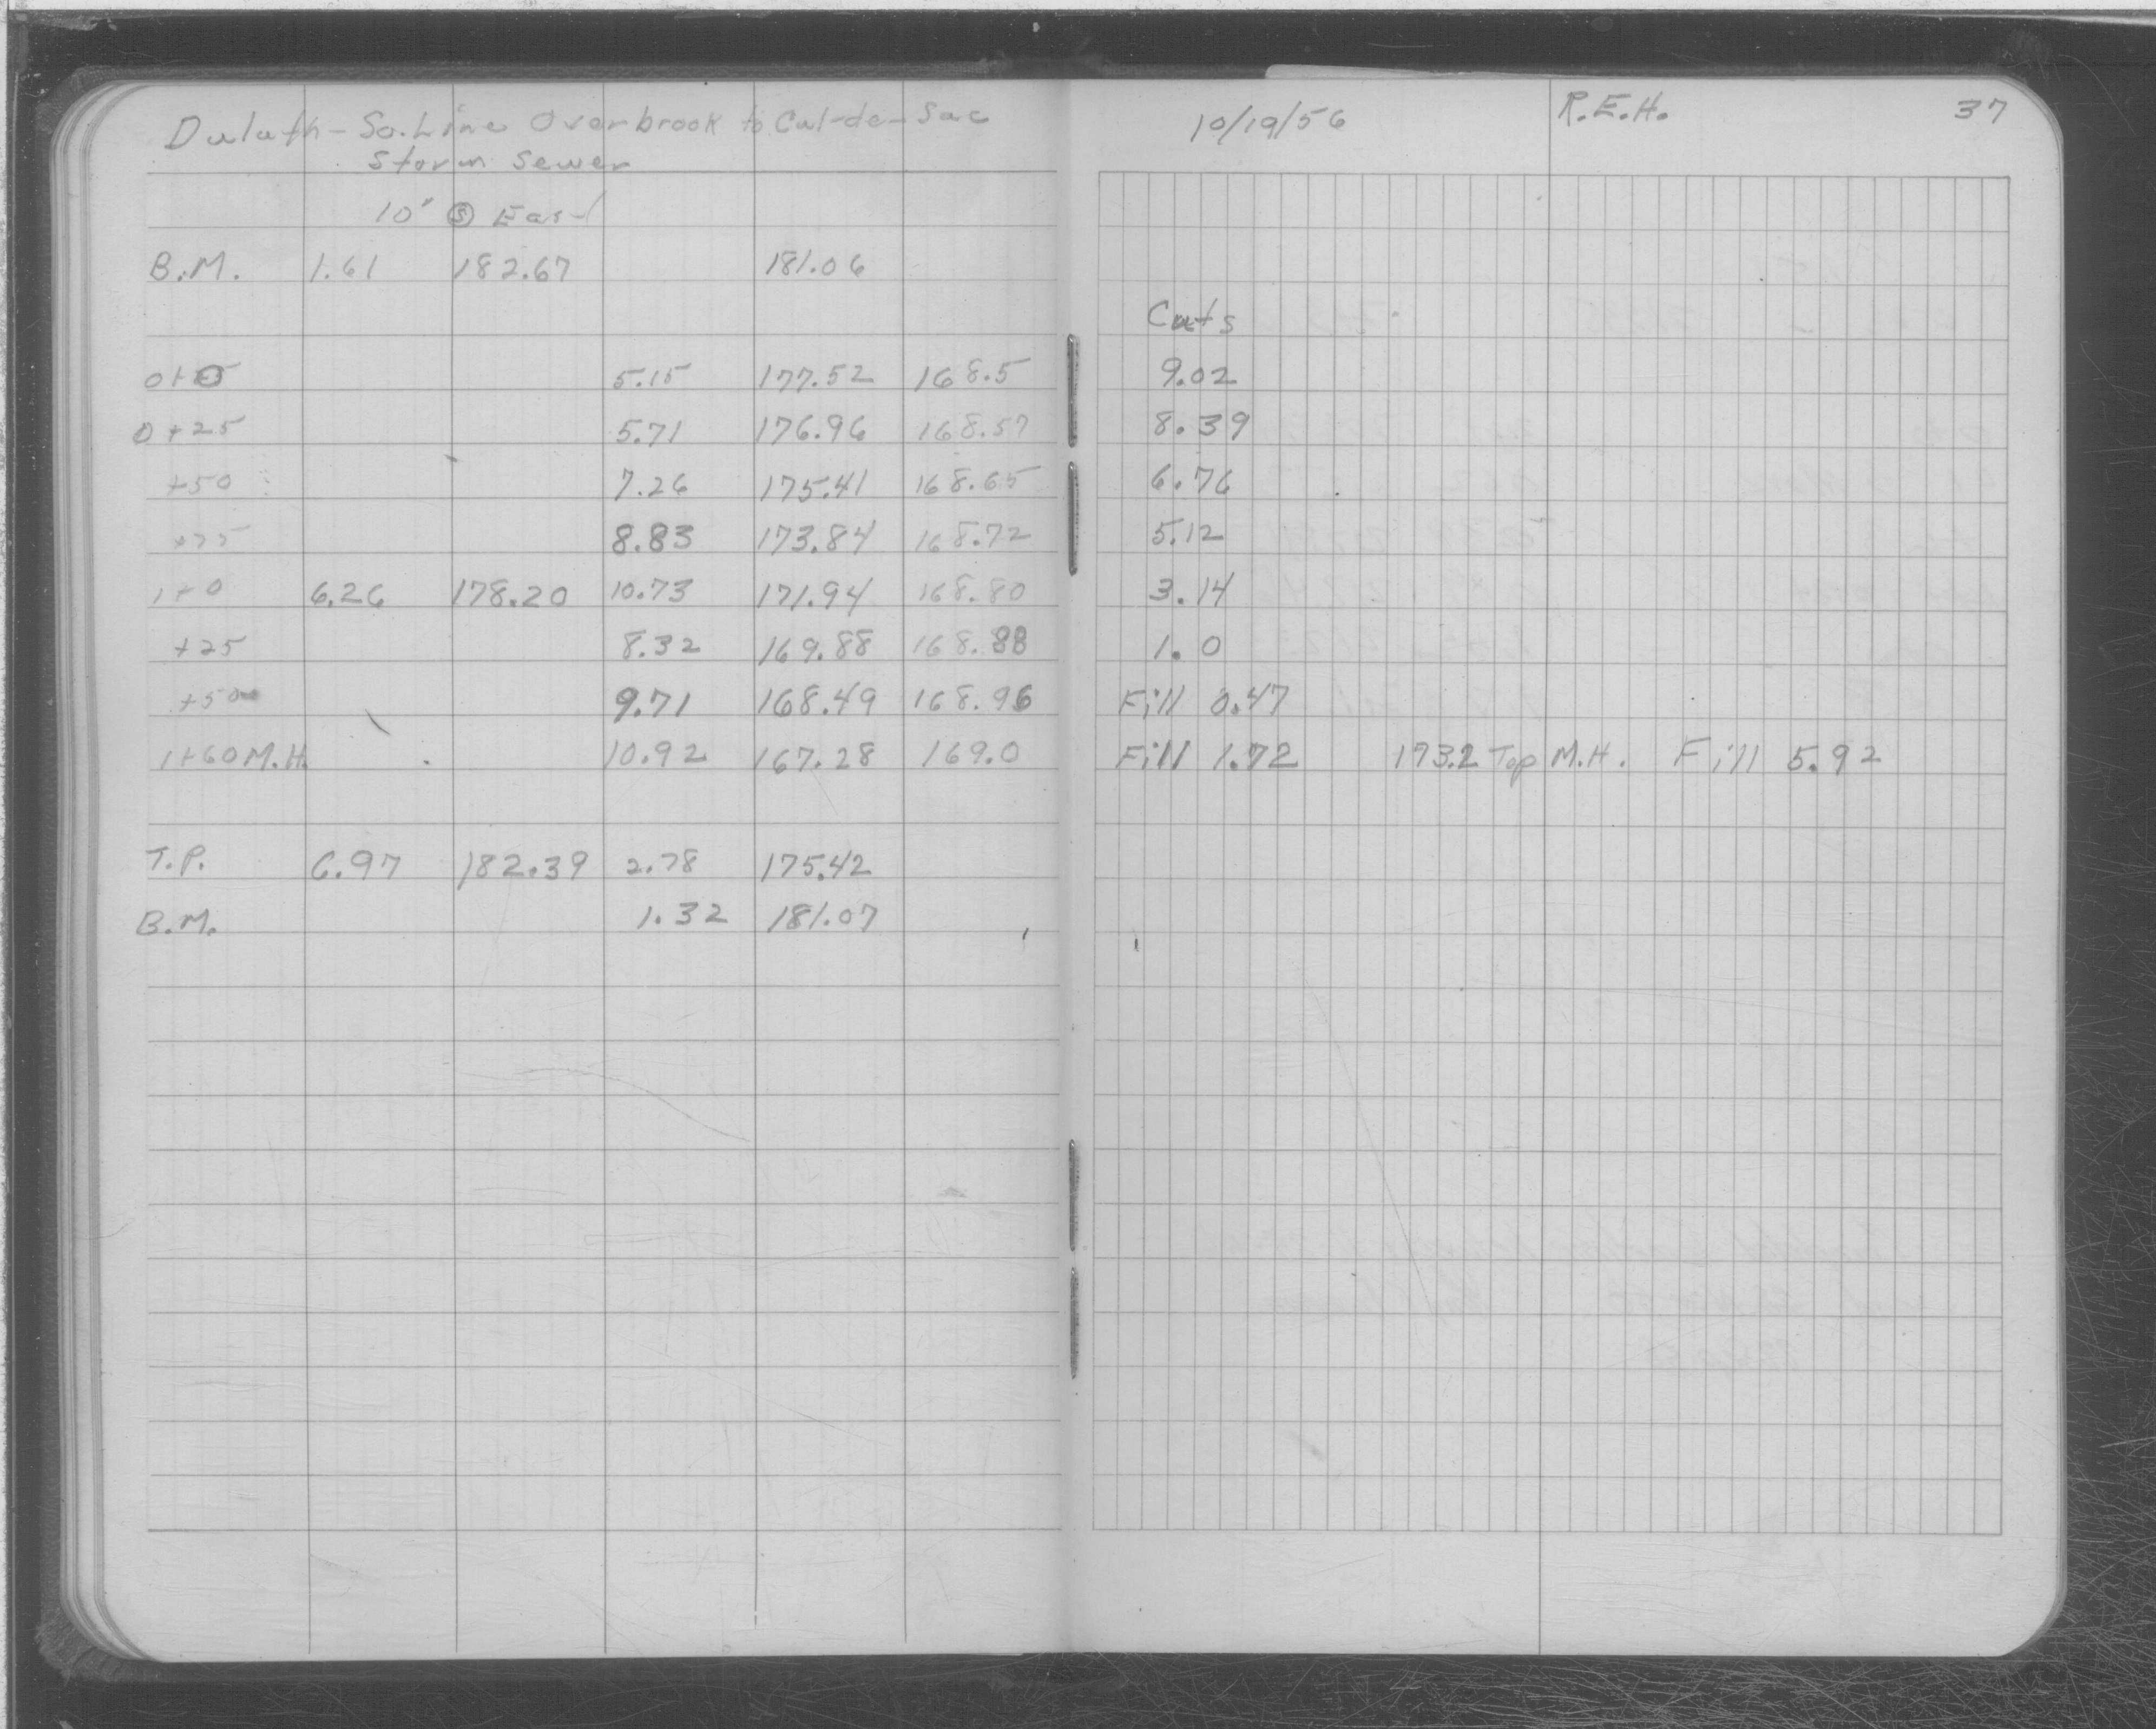 Duluth - So. Line Overbrook to Cul-de-Sac
Storm Sewer
10" Ⓢ East
B.M. 1.61 182.67 181.06
0+0 5.15 177.52 168.5
0+25 5.71 176.96 168.57
+50 7.26 175.41 168.65
+75 8.83 173.84 168.72
1+0 6.26 178.20 10.73 171.94 168.80
+25 8.32 169.88 168.88
+50 9.71 168.49 168.96
1+60 M.H. 10.92 167.28 169.0
T.P. 6.97 182.39 2.78 175.42
B.M. 1.32 181.07
10/19/56 R.E.H. 37
Cuts
9.02
8.39
6.76
5.12
3.14
1.0
Fill 0.47
Fill 1.72 173.2 Top M.H. Fill 5.92